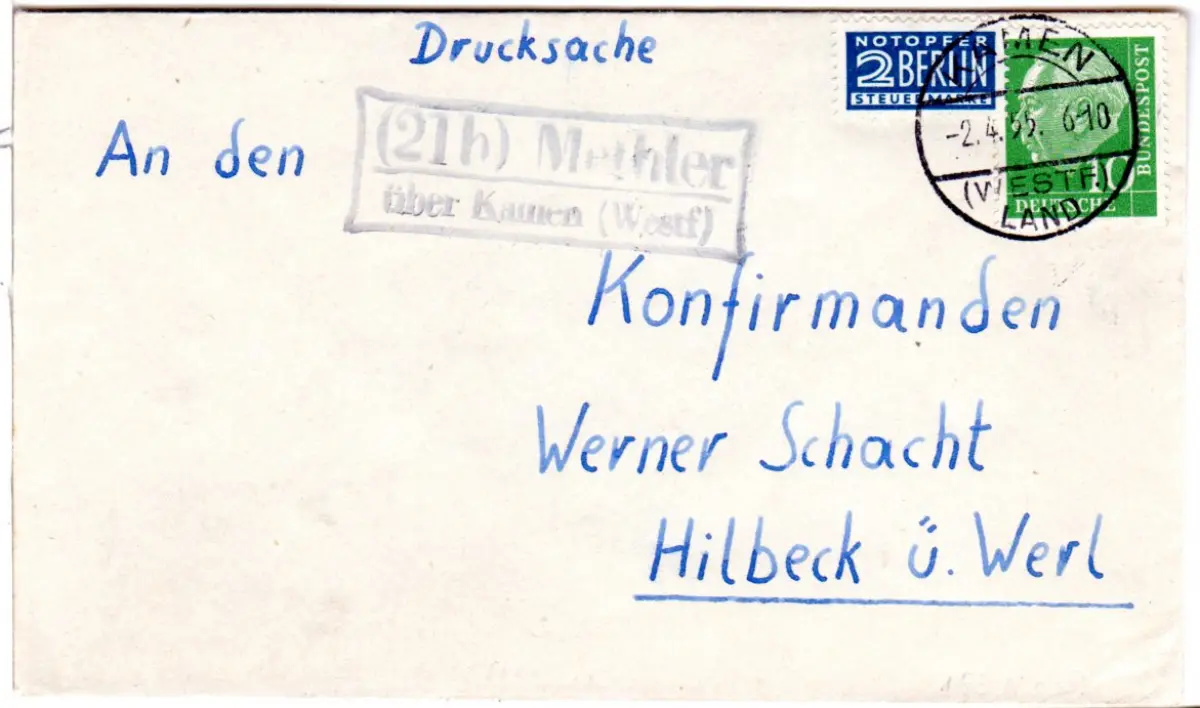 Drucksache
NOTOPFER
2 BERLIN
STEUERMARKE
KAMEN
-2.4.55. 6-10
(WESTF.)
LAND
10
DEUTSCHE
BUNDESPOST
(21b) Methler
über Kamen (Westf)
An den
Konfirmanden
Werner Schacht
Hilbeck ü. Werl